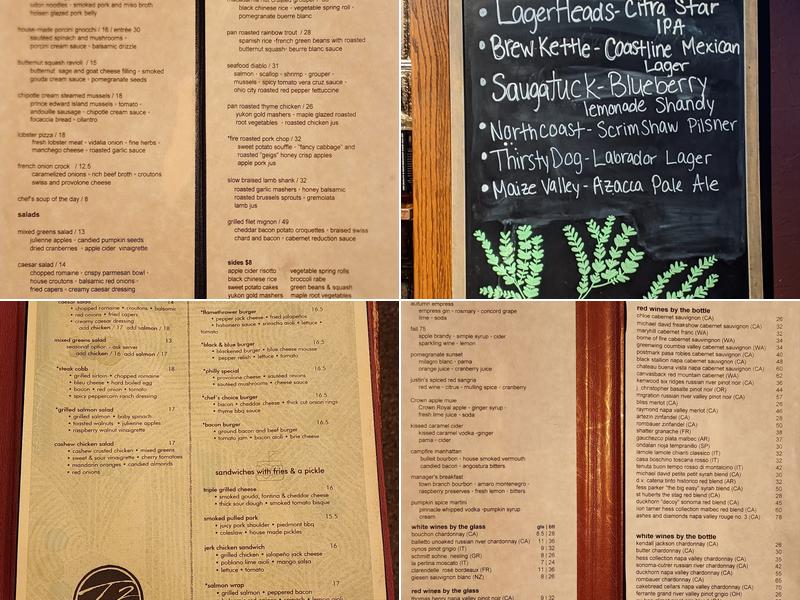 udon noodles - smoked pork and miso broth
hoisen glazed pork belly
house-made porcini gnocchi / 16 / entrée 30
sautéed spinach and mushrooms -
porcini cream sauce - balsamic drizzle
butternut squash ravioli / 15
butternut sage and goat cheese filling - smoked
gouda cream sauce - pomegranate seeds
chipotle cream steamed mussels / 18
prince edward island mussels - tomato -
andouille sausage - chipotle cream sauce -
focaccia bread - cilantro
lobster pizza / 18
fresh lobster meat - vidalia onion - fine herbs -
manchego cheese - roasted garlic sauce
french onion crock / 12.5
caramelized onions - rich beef broth - croutons
swiss and provolone cheese
chef's soup of the day / 8
salads
mixed greens salad / 13
julienne apples - candied pumpkin seeds
dried cranberries - apple cider vinaigrette
caesar salad / 14
chopped romaine - crispy parmesan bowl -
house croutons - balsamic red onions -
fried capers - creamy caesar dressing
macadamia nut crusted grouper
black chinese rice - vegetable spring roll -
pomegranate buerre blanc
pan roasted rainbow trout / 28
spanish rice - french green beans with roasted
butternut squash - beurre blanc sauce
seafood diablo / 31
salmon - scallop - shrimp - grouper -
mussels - spicy tomato vera cruz sauce -
ohio city roasted red pepper fettuccine
pan roasted thyme chicken / 26
yukon gold mashers - maple glazed roasted
root vegetables - roasted chicken jus
*fire roasted pork chop / 32
sweet potato souffle - "fancy cabbage" and
roasted "geigs" honey crisp apples
apple pork jus
slow braised lamb shank / 32
roasted garlic mashers - honey balsamic
roasted brussels sprouts - gremolata
lamb jus
grilled filet mignon / 49
cheddar bacon potato croquettes - braised swiss
chard and bacon - cabernet reduction sauce
sides $8
apple cider risotto vegetable spring rolls
black chinese rice broccoli rabe
sweet potato cakes green beans & squash
yukon gold mashers maple root vegetables
LagerHeads - Citra Star
IPA
Brew Kettle - Coastline Mexican
Lager
Saugatuck - Blueberry
lemonade Shandy
Northcoast - ScrimShaw Pilsner
Thirsty Dog - Labrador Lager
Maize Valley - Azacca Pale Ale
caesar salad 14
• chopped romaine • croutons • balsamic
• red onions • fried capers
• creamy caesar dressing
add chicken / 17 add salmon / 18
mixed greens salad 13
seasonal option - ask server
add chicken / 16 add salmon / 17
*steak cobb 18
• grilled sirloin • chopped romaine
• bleu cheese • hard boiled egg
• bacon • red onion • tomato
• spicy peppercorn ranch dressing
*grilled salmon salad 17
• grilled salmon • baby spinach
• toasted walnuts • julienne apples
• raspberry walnut vinaigrette
cashew chicken salad 17
• cashew crusted chicken • mixed greens
• sweet & sour vinaigrette • cherry tomatoes
• mandarin oranges • candied almonds
• red onions
*flamethrower burger 16.5
• pepper jack cheese • fried jalapeños
• habanero sauce • sriracha aioli • lettuce •
tomato
*black & blue burger 16.5
• blackened burger • blue cheese mousse
• pepper relish • lettuce • tomato
*philly special 16.5
• provolone cheese • sautéed onions
• sautéed mushrooms • cheese sauce
*chef's choice burger 16.5
• bacon • cheddar cheese • thick cut onion rings
• thyme bbq sauce
*bacon burger 16.5
• ground bacon and beef burger
• tomato jam • bacon aioli • brie cheese
sandwiches with fries & a pickle
triple grilled cheese 16
• smoked gouda, fontina & cheddar cheese
• thick sour dough • smoked tomato bisque
smoked pulled pork 15.5
• juicy pork shoulder • piedmont bbq
• coleslaw • house made pickles
jerk chicken sandwich 16
• grilled chicken • jalapeño jack cheese
• poblano lime aioli • mango salsa
• lettuce • tomato
*salmon wrap 17
• grilled salmon • peppered bacon
autumn empress
empress gin - rosemary - concord grape
lime - soda
fall 75
apple brandy - simple syrup - cider
sparkling wine - lemon
pomegranate sunset
milagro blanc - pama
orange juice - cranberry juice
justin's spiced red sangria
red wine - citrus - mulling spice - cranberry
Crown apple mule
Crown Royal apple - ginger syrup -
fresh lime juice - soda
kissed caramel cider
kissed caramel vodka - ginger
pama - cider
campfire manhattan
bullet bourbon - house smoked vermouth
candied bacon - angostura bitters
manager's breakfast
town branch bourbon - amaro montenegro -
raspberry preserves - fresh lemon - bitters
pumpkin spice martini
pinnacle whipped vodka - pumpkin syrup
cream
white wines by the glass gls | btl
bouchon chardonnay (CA) 8.5 | 28
balletto unoaked russian river chardonnay (CA) 11 | 36
oynos pinot grigio (IT) 9 | 32
schmitt sohne riesling (GR) 8 | 26
la perlina moscato (IT) 7 | 24
clarendelle rosé bordeaux (FR) 11 | 36
giesen sauvignon blanc (NZ) 8 | 26
red wines by the glass
thomas henry napa valley pinot noir (CA) 9 | 32
red wines by the bottle
chloe cabernet sauvignon (CA) 26
michael david freakshow cabernet sauvignon (CA) 32
maryhill cabernet franc (WA) 34
borne of fire cabernet sauvignon (WA)
greenwing coumbia valley cabernet sauvignon (WA)
postmark paso robles cabernet sauvignon (CA)
black stallion napa cabernet sauvignon (CA)
chateau buena vista napa cabernet sauvignon (CA)
canvasback red mountain cabernet (WA)
kenwood six ridges russian river pinot noir (CA)
j. christopher basalte pinot noir (OR)
migration russian river valley pinot noir (CA)
bliss merlot (CA)
raymond napa valley merlot (CA)
artezin zinfandel (CA)
rombauer zinfandel (CA)
shatter granache (FR)
gauchezco plata malbec (AR)
ondalan rioja tempranillo (SP)
lamole lamole chianti classico (IT)
casa boschino toscana rosso (IT)
tenuta buon tempo rosso di montalcino (IT)
michael david petite petit syrah blend (CA)
d.v. catena tinto historico red blend (AR)
fess parker "the big easy" syrah blend (CA)
st huberts the stag red blend (CA)
duckhorn "decoy" sonoma red blend (CA)
ion tamer hess collection malbec red blend (CA)
ashes and diamonds napa valley rouge no. 3 (CA) 78
white wines by the bottle
kendall jackson chardonnay (CA) 28
butter chardonnay (CA) 30
hess collection napa valley chardonnay (CA)
sonoma-cutrer russian river chardonnay (CA)
duckhorn napa valley chardonnay (CA)
rombauer chardonnay (CA)
cakebread cellars napa valley chardonnay (CA)
ferrante grand river valley pinot grigio (OH)